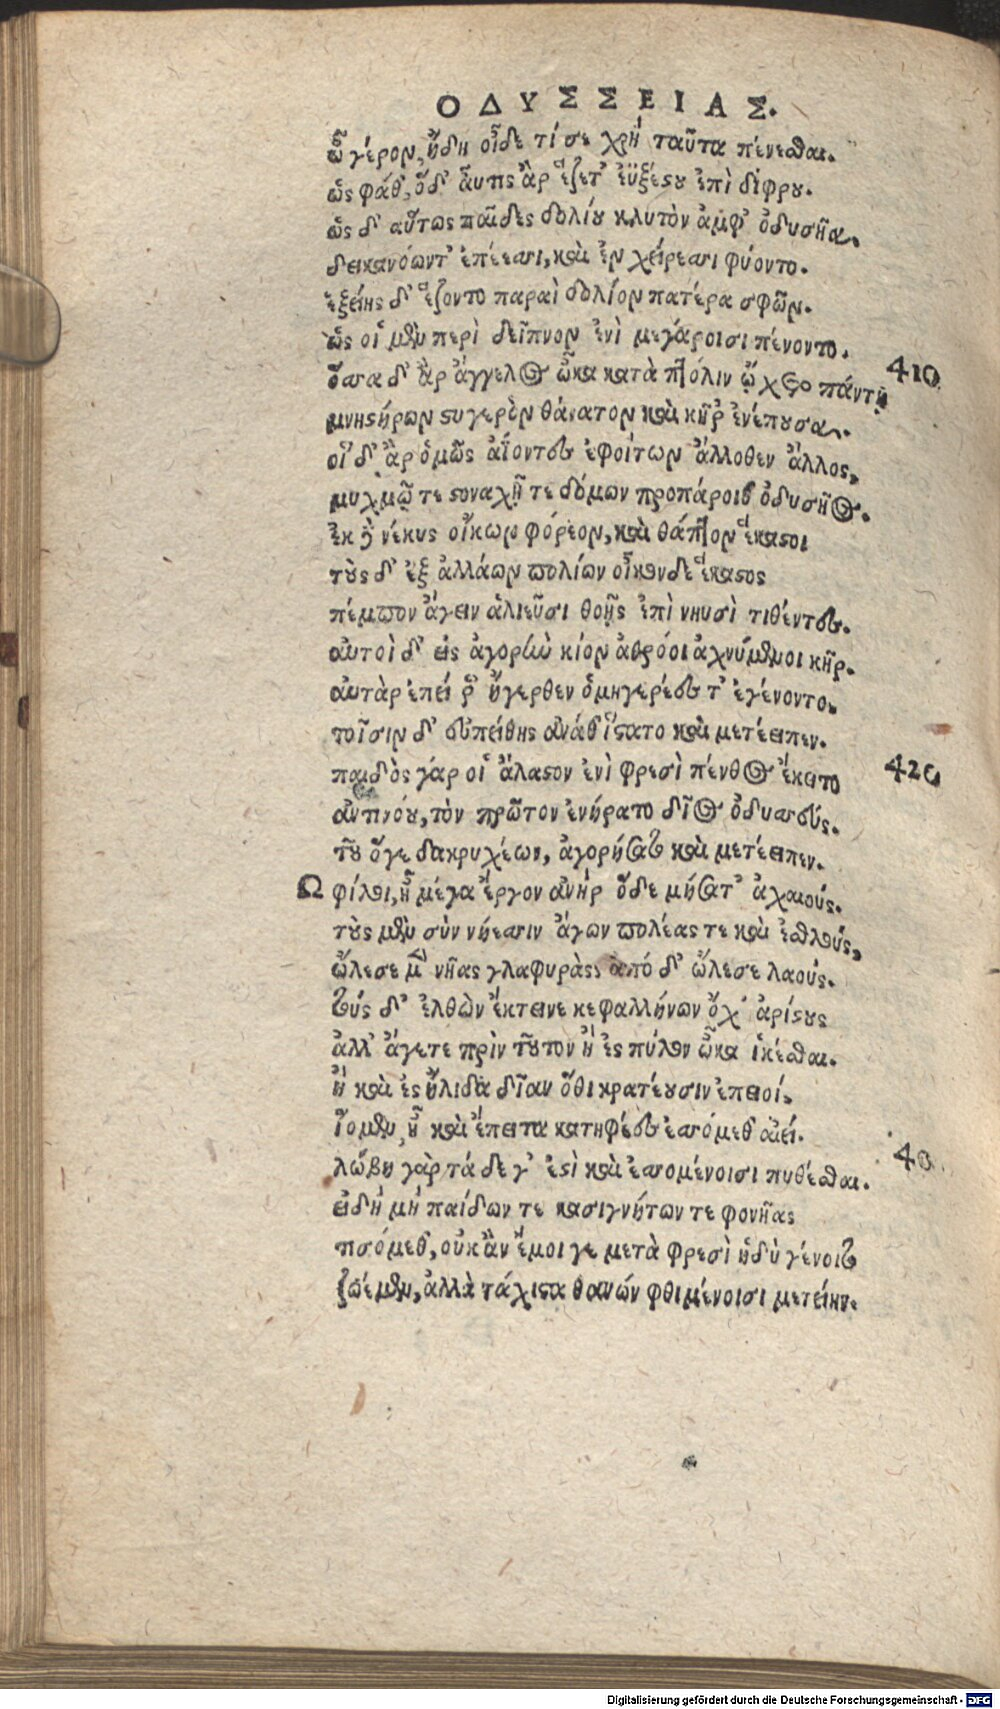 ΟΔΥΣΣΕΙΑΣ.
ὦ γέρον, ἤδη οἶδε τί σε χρὴ ταῦτα πένεσθαι.
ὣς φάθ', ὅδ' αὖτις ἂρ ἕζετ' ἐϋξέστου ἐπὶ δίφρου.
ὣς δ' αὕτως παῖδες δολίου κλυτὸν ἀμφ' ὀδυσῆα.
δεικανόωντ' ἐπέεσσι, καὶ ἐν χείρεσσι φύοντο.
ἐξείης δ' ἕζοντο παραὶ δολίον πατέρα σφῶν.
ὣς οἱ μὲν περὶ δεῖπνον ἐνὶ μεγάροισι πένοντο.
ὄσσα δ' ἂρ ἄγγελος ὦκα κατὰ πτόλιν ᾤχετο πάντῃ 410
μνηστήρων στυγερὸν θάνατον καὶ κῆρ' ἐνέπουσα.
οἳ δ' ἂρ ὁμῶς ἀΐοντες ἐφοίτων ἄλλοθεν ἄλλος,
μυχμῷ τε στοναχῇ τε δόμων προπάροιθ' ὀδυσῆος.
ἐκ δὲ νέκυς οἴκων φόρεον, καὶ θάπτον ἕκαστοι
τοὺς δ' ἐξ ἀλλάων πολίων οἶκονδε ἕκαστος
πέμπον ἄγειν ἁλιεῦσι θοῇς ἐπὶ νηυσὶ τιθέντες.
αὐτοὶ δ' εἰς ἀγορὴν κίον ἀθρόοι ἀχνύμενοι κῆρ.
αὐτὰρ ἐπεί ῥ' ἤγερθεν ὁμηγερέες τ' ἐγένοντο.
τοῖσιν δ' εὐπείθης ἀνάθ' ἵστατο καὶ μετέειπεν.
παιδὸς γάρ οἱ ἄλαστον ἐνὶ φρεσὶ πένθος ἔκειτο 420
ἀντινόου, τὸν πρῶτον ἐνήρατο δῖος ὀδυσσεύς.
τοῦ ὅγε δακρυχέων, ἀγορήσατο καὶ μετέειπεν.
Ὦ φίλοι, ἦ μέγα ἔργον ἀνὴρ ὅδε μήσατ' ἀχαιούς.
τοὺς μὲν σὺν νήεσσιν ἄγων πολέας τε καὶ ἐσθλούς,
ὤλεσε μὲν νῆας γλαφυρὰς, ἀπό δ' ὤλεσε λαούς.
τοὺς δ' ἐλθὼν ἔκτεινε κεφαλλήνων ὄχ' ἀρίστους
ἀλλ' ἄγετε πρὶν τοῦτον ἢ ἐς πύλον ὦκα ἱκέσθαι.
ἢ καὶ ἐς ἤλιδα δῖαν ὅθι κρατέουσιν ἐπειοί.
ἴομεν, ἦ καὶ ἔπειτα κατηφέες ἐσσόμεθ' αἰεί.
λώβη γὰρ τά δε γ' ἐστὶ καὶ ἐσσομένοισι πυθέσθαι.
εἰ δὴ μὴ παίδων τε κασιγνήτων τε φονῆας
τισόμεθ', οὐκ ἂν ἔμοι γε μετὰ φρεσὶ ἡδὺ γένοιτο
ζωέμεν, ἀλλὰ τάχιστα θανών φθιμένοισι μετείην.
Digitalisierung gefördert durch die Deutsche Forschungsgemeinschaft - DFG